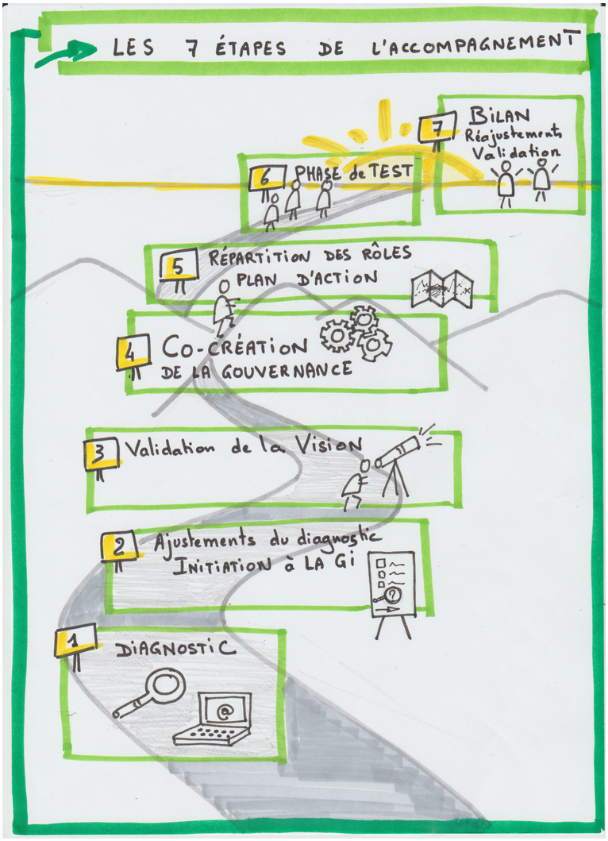 LES 7 ÉTAPES DE L'ACCOMPAGNEMENT
7
BILAN
Réajustements
Validation
6
PHASE de TEST
5
RÉPARTITION DES RÔLES
PLAN D'ACTION
4
CO-CRÉATION
DE LA GOUVERNANCE
3
Validation de la Vision
2
Ajustements du diagnostic
INITIATION à LA Gi
?
1
DIAGNOSTIC
@